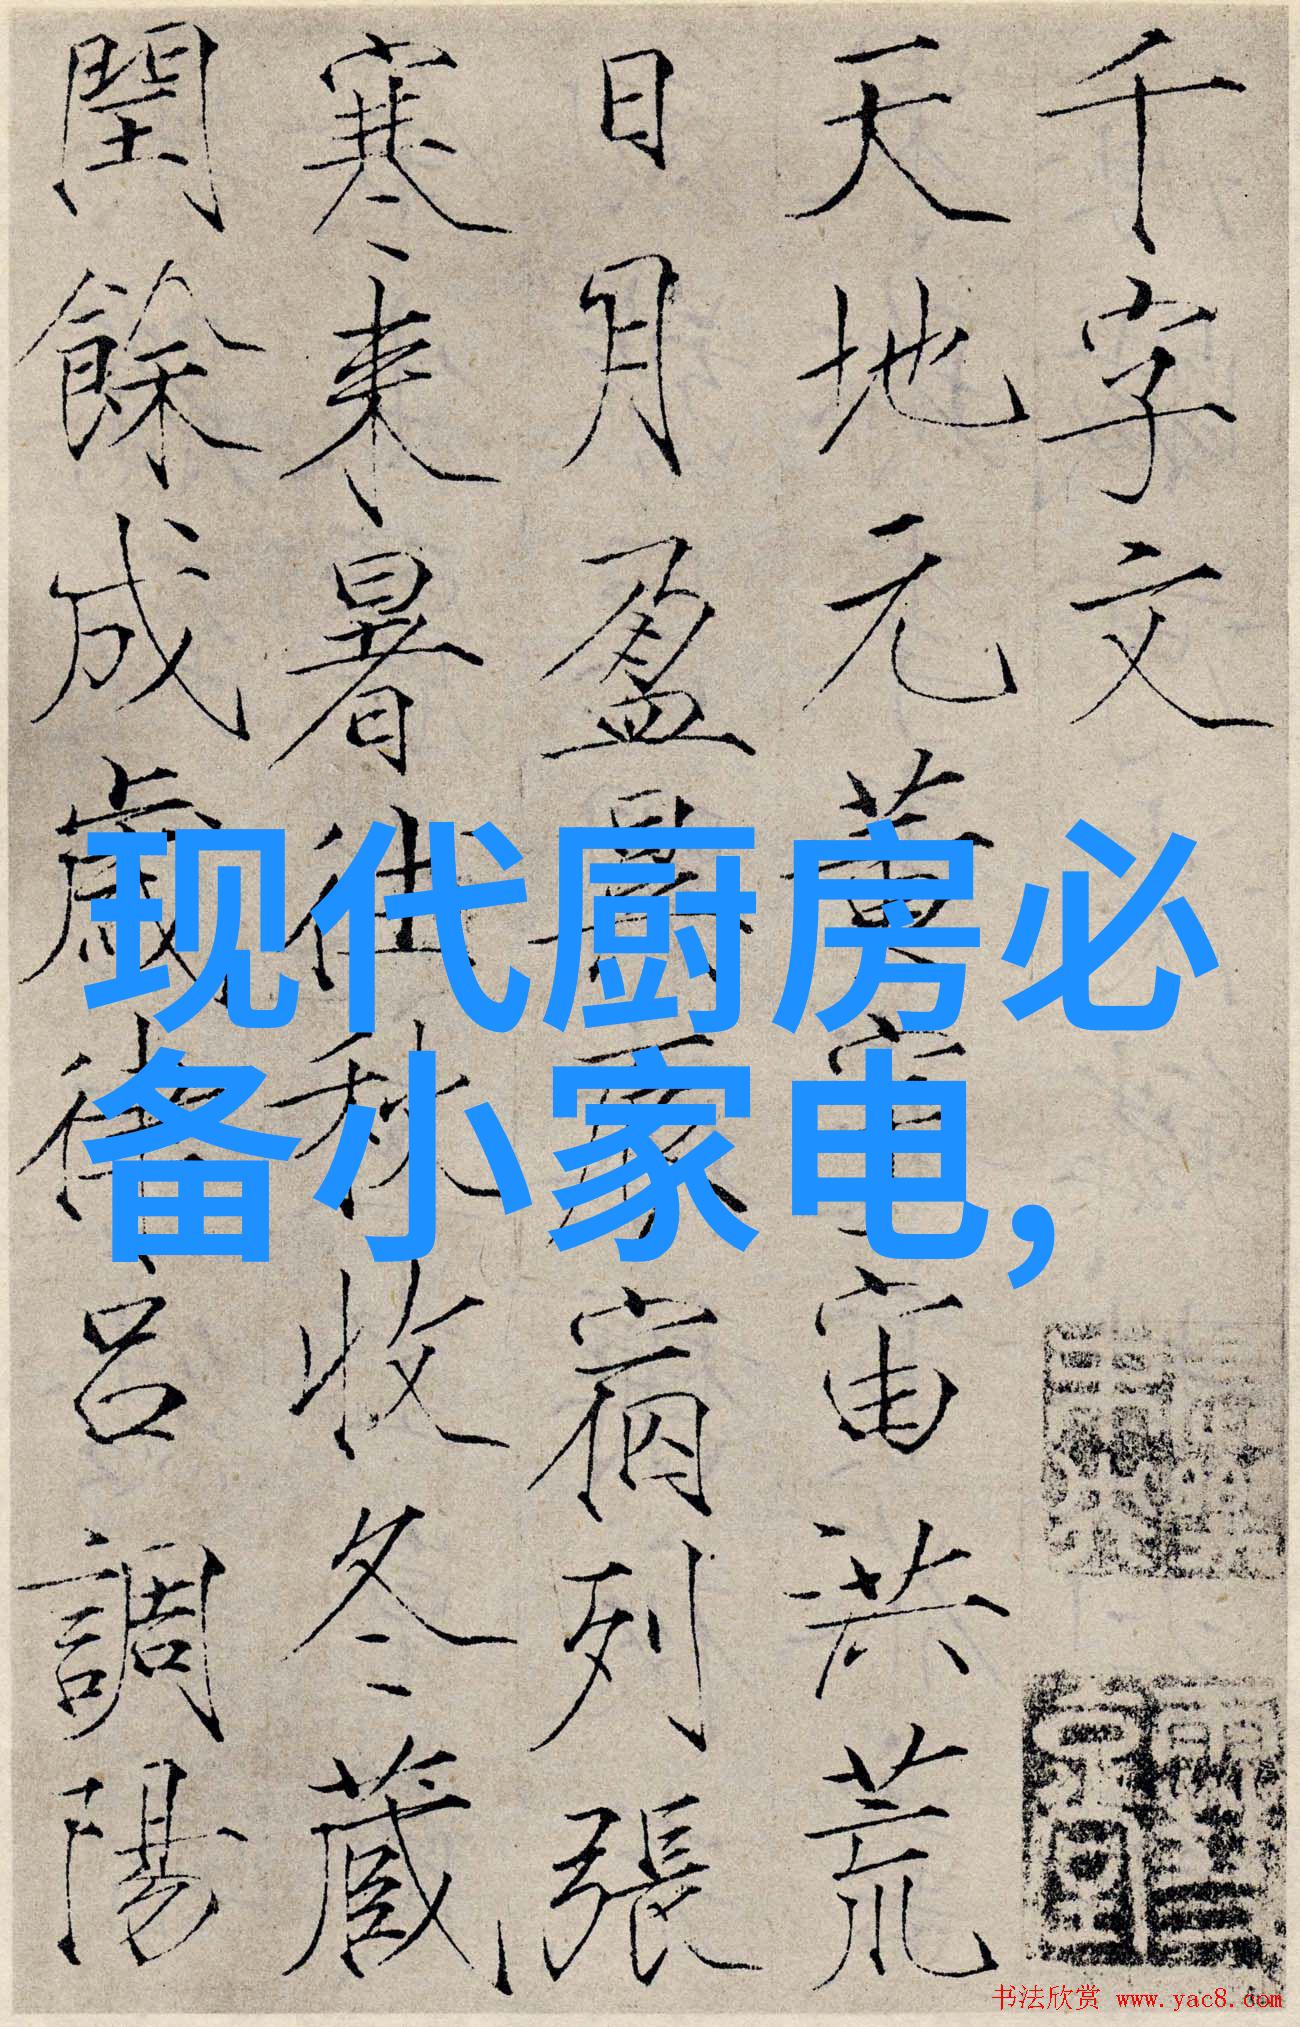 千字文
天地元黄宇宙洪荒
日月盈昃辰宿列張
寒来暑往秋收冬藏
閏餘成歲律呂調陽
现代厨房必
备小家电,
书法欣赏 www.yac8.com